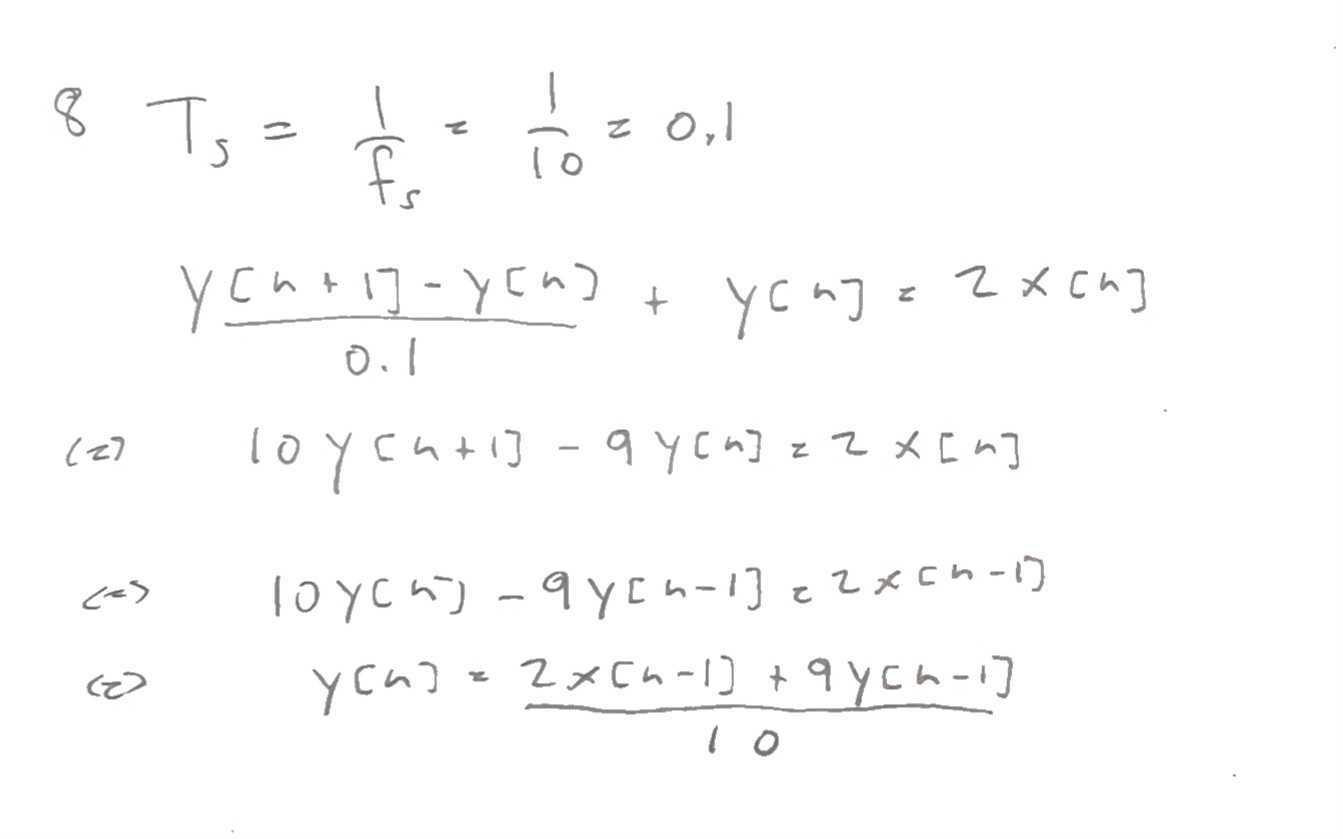 8 Ts = 1/fs = 1/10 = 0,1
(y[n+1] - y[n])/0.1 + y[n] = 2x[n]
<=> 10y[n+1] - 9y[n] = 2x[n]
<=> 10y[n] - 9y[n-1] = 2x[n-1]
<=> y[n] = (2x[n-1] + 9y[n-1])/10